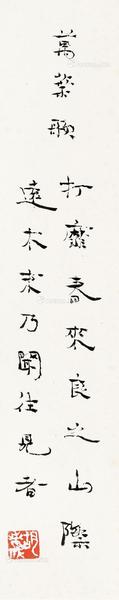 萬葉歌
打靡春來良之山際
遠木末乃開往見者